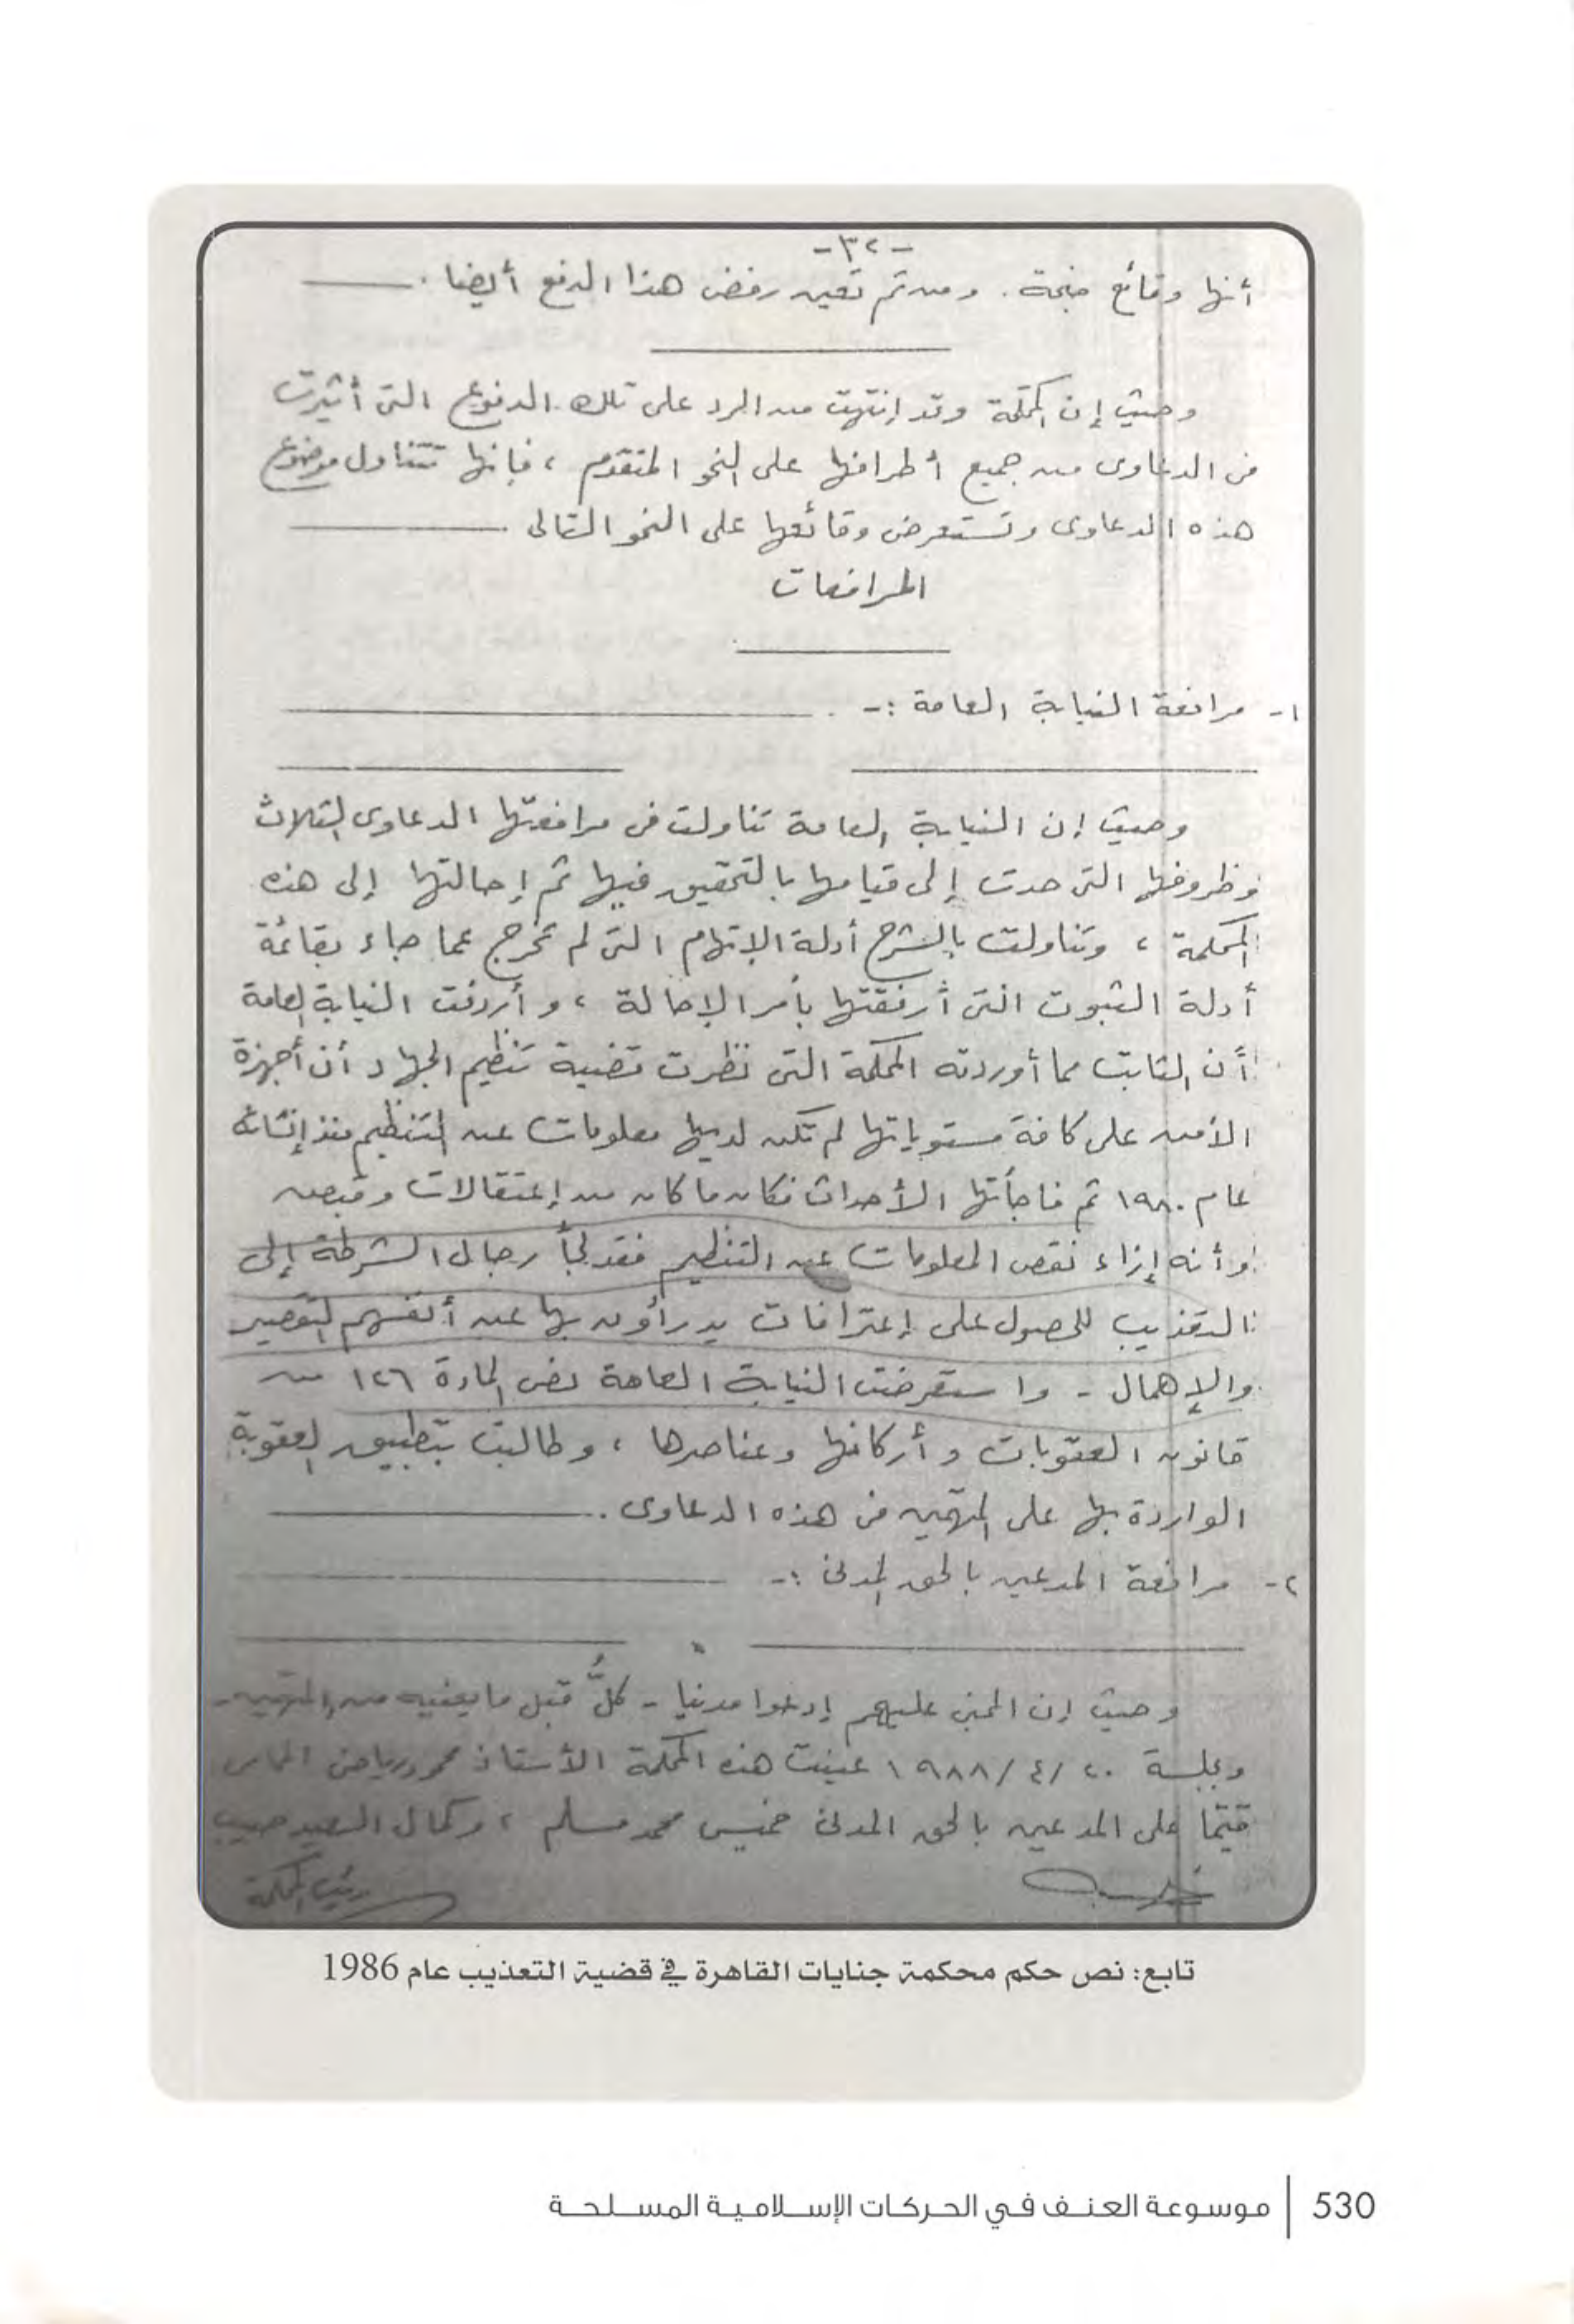 -٣٢-
أنها وقائع جنحة . ومن ثم تعين رفض هذا الدفع أيضا .
وحيث إن المحكمة وقد إنتهت من الرد على تلك الدفوع التى أثيرت
فى الدعاوى من جميع أطرافها على النحو المتقدم ، فإنها تتناول موضوع
هذه الدعاوى وتستعرض وقائعها على النحو التالى
المرافعات
١- مرافعة النيابة العامة :-
وحيث إن النيابة العامة تناولت فى مرافعتها الدعاوى الثلاث
وظروفها التى حدت إلى قيامها بالتحقيق فيها ثم إحالتها إلى هذه
المحكمة ، وتناولت بالشرح أدلة الإتهام التى لم تخرج عما جاء بقائمة
أدلة الثبوت التى أرفقتها بأمر الإحالة ، وأردفت النيابة العامة
أن الثابت مما أوردته المحكمة التى نظرت قضية تنظيم الجهاد أن أجهزة
الأمن على كافة مستوياتها لم تكن لديها معلومات عن التنظيم منذ إنشائه
عام ١٩٨٠ ثم فاجأتها الأحداث فكان ما كان من إعتقالات وقبض
وأنه إزاء نقص المعلومات عن التنظيم فقد لجأ رجال الشرطة إلى
التعذيب للحصول على إعترافات يدرأون بها عن أنفسهم التقصير
والإهمال - واستعرضت النيابة العامة نص المادة ١٢٦ من
قانون العقوبات وأركانها وعناصرها ، وطالبت بتطبيق العقوبة
الواردة بها على المتهمين فى هذه الدعاوى .
٢- مرافعة المدعين بالحق المدنى :-
وحيث إن المجنى عليهم إدعوا مدنيا - كلٌ قبل ما يعنيه من المتهمين -
وبجلسة ٢٠ /٤/ ١٩٨٨ عينت هذه المحكمة الأستاذ محمود رياض المحامى
قيّما على المدعين بالحق المدنى خميس محمد مسلم ، وكمال السعيد حبيب
رئيس المحكمة
تابع: نص حكم محكمة جنايات القاهرة في قضية التعذيب عام 1986
530 | موسوعة العنف في الحركات الإسلامية المسلحة